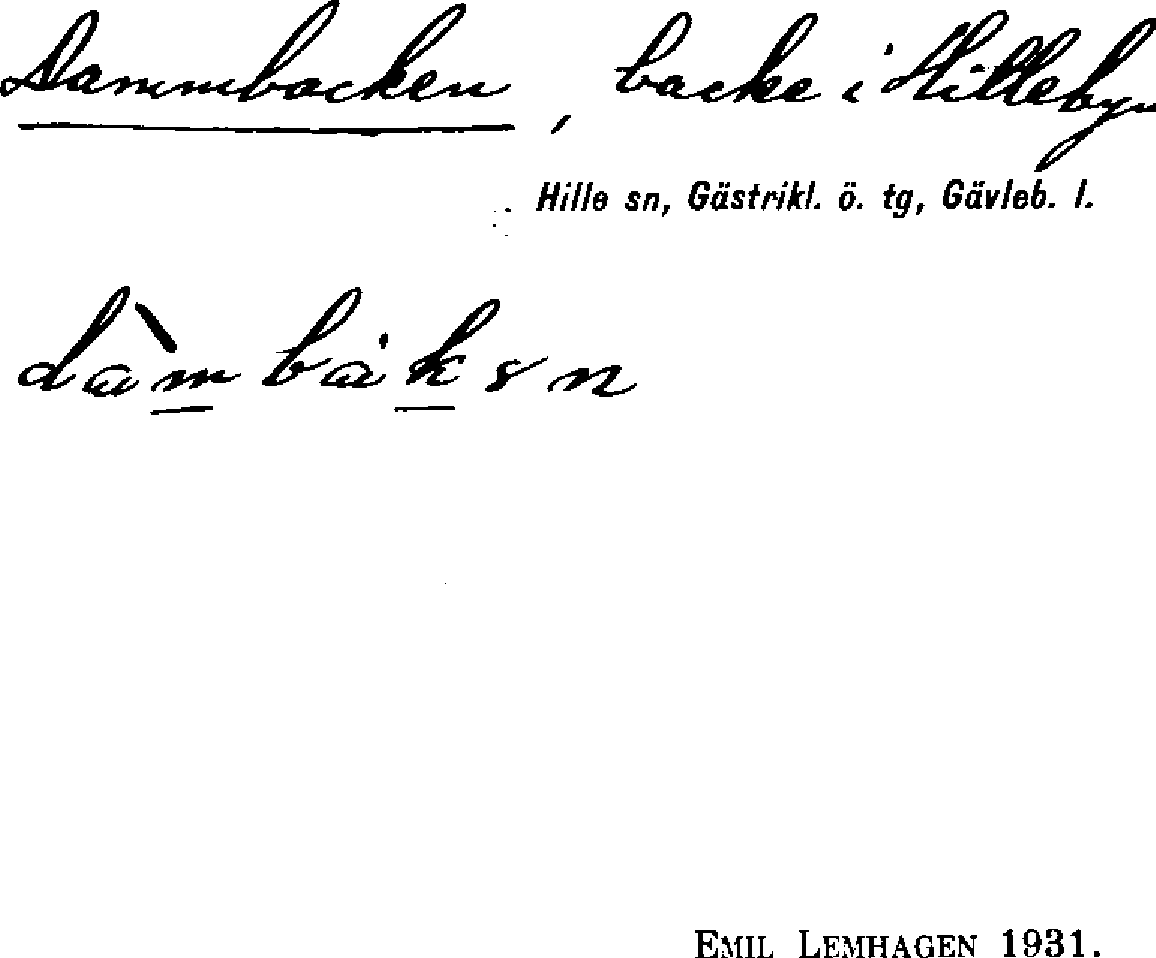 Dammbacken, backe i Hilleby
Hille sn, Gästrikl. ö. tg, Gävleb. l.
dàmbaksn
EMIL LEMHAGEN 1931.